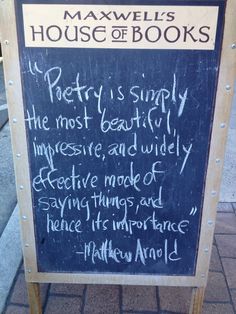 MAXWELL'S
HOUSE OF BOOKS
"Poetry is simply
the most beautiful,
impressive, and widely
effective mode of
saying things, and
hence its importance"
-Matthew Arnold